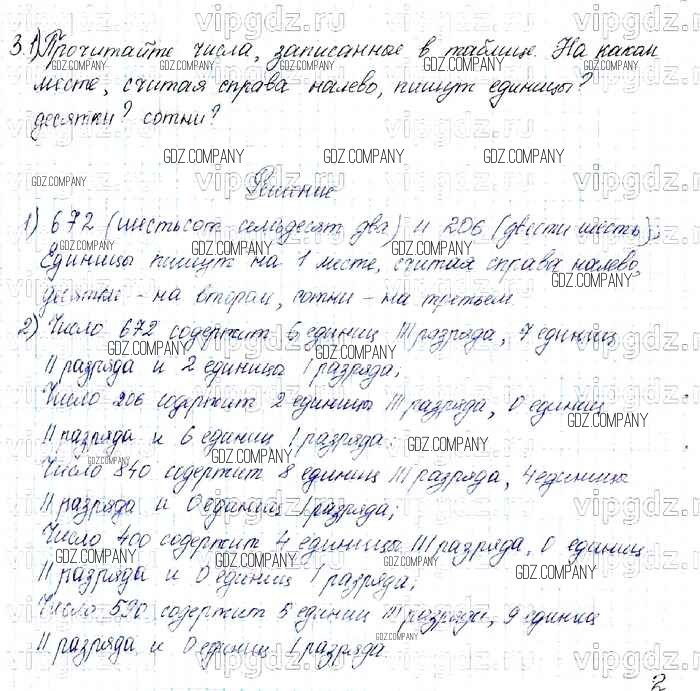 3. 1) Прочитайте числа, записанные в таблице. На каком
месте, считая справа налево, пишут единицы?
десятки? сотни?
Решение
1) 672 (шестьсот семьдесят два) и 206 (двести шесть).
Единицы пишут на 1 месте, считая справа налево,
десятки - на втором, сотни - на третьем
2) Число 672 содержит 6 единиц III разряда, 7 единиц
II разряда и 2 единицы I разряда;
Число 206 содержит 2 единицы III разряда, 0 единиц
II разряда и 6 единиц I разряда;
Число 840 содержит 8 единиц III разряда, 4 единицы
II разряда и 0 единиц I разряда;
Число 400 содержит 4 единицы III разряда, 0 единиц
II разряда и 0 единиц I разряда;
Число 590 содержит 5 единиц III разряда, 9 единиц
II разряда и 0 единиц I разряда
2